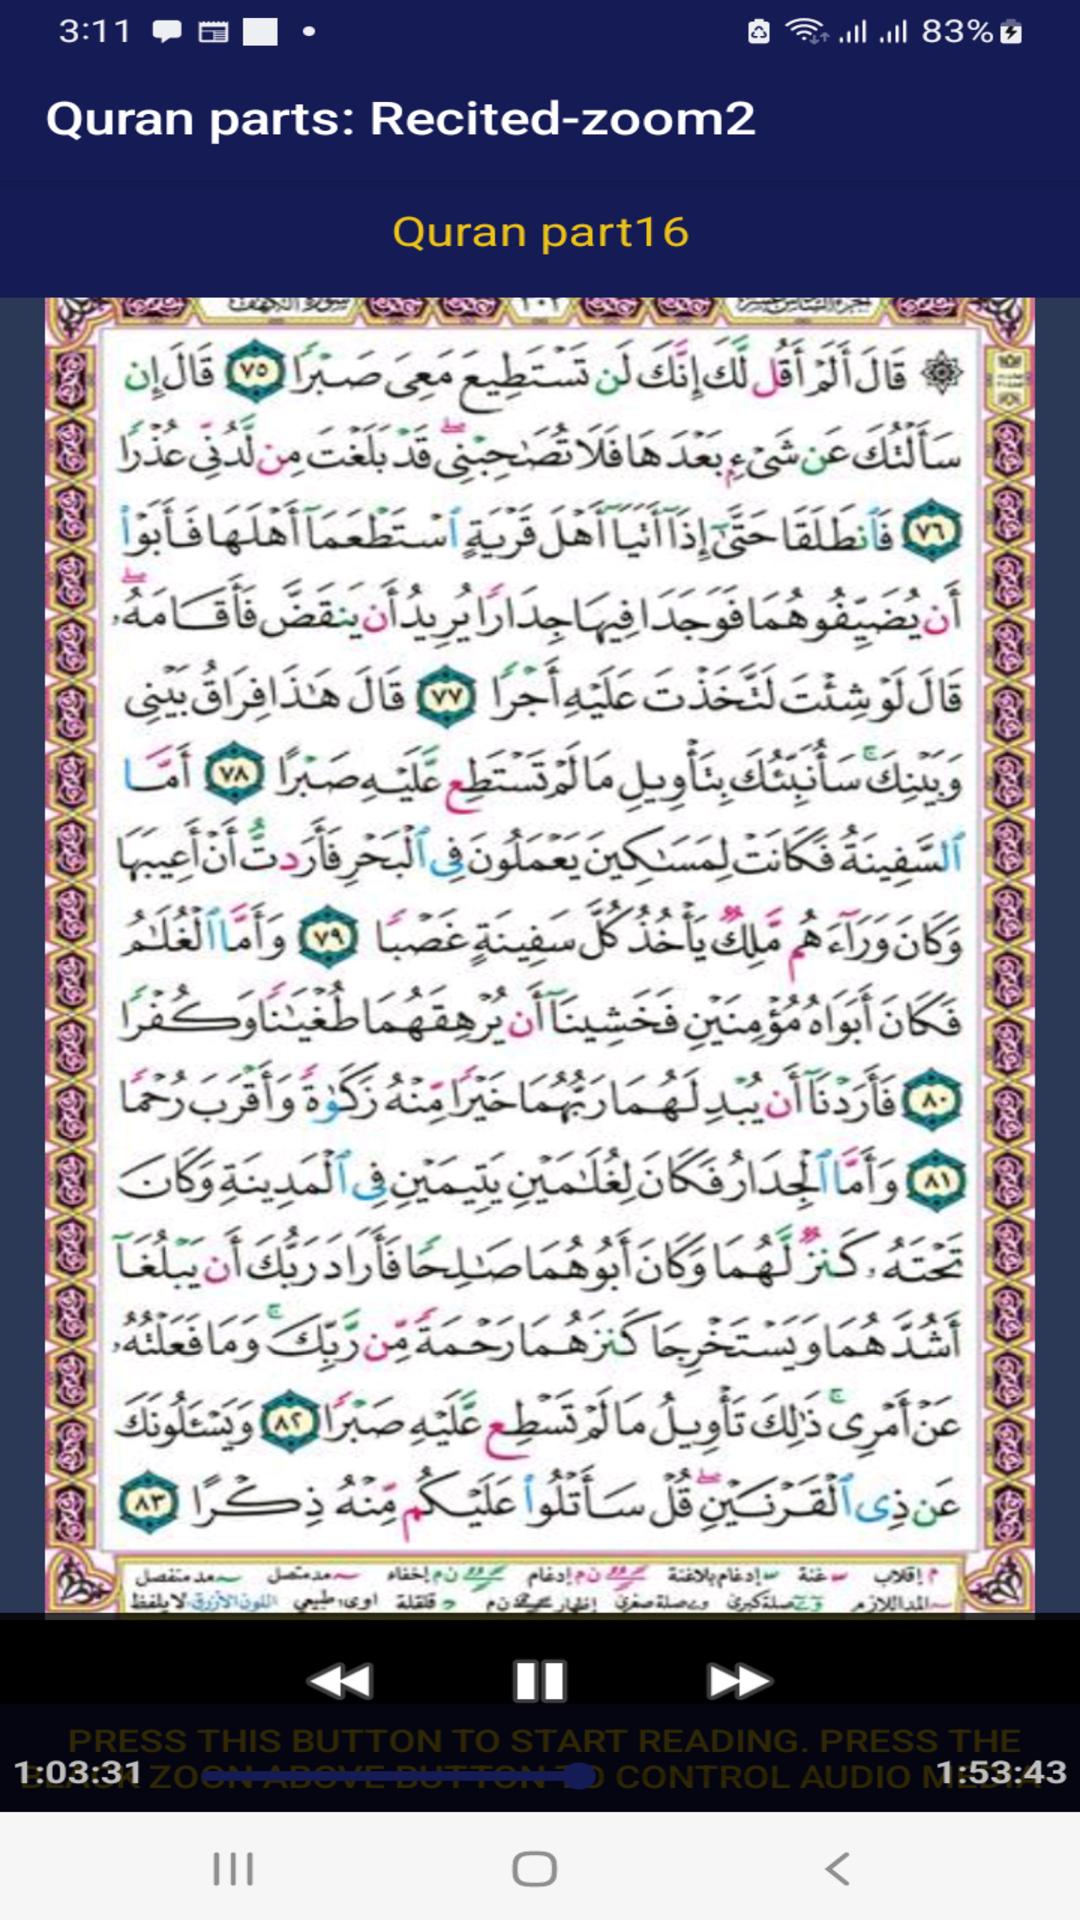 3:11
83%
Quran parts: Recited-zoom2
Quran part16
۞ قَالَ أَلَمْ أَقُل لَّكَ إِنَّكَ لَن تَسْتَطِيعَ مَعِىَ صَبْرًا ٧٥ قَالَ إِن
سَأَلْتُكَ عَن شَىْءٍۭ بَعْدَهَا فَلَا تُصَـٰحِبْنِى ۖ قَدْ بَلَغْتَ مِن لَّدُنِّى عُذْرًا
٧٦ فَٱنطَلَقَا حَتَّىٰٓ إِذَآ أَتَيَآ أَهْلَ قَرْيَةٍ ٱسْتَطْعَمَآ أَهْلَهَا فَأَبَوْا۟
أَن يُضَيِّفُوهُمَا فَوَجَدَا فِيهَا جِدَارًا يُرِيدُ أَن يَنقَضَّ فَأَقَامَهُۥ ۖ
قَالَ لَوْ شِئْتَ لَتَّخَذْتَ عَلَيْهِ أَجْرًا ٧٧ قَالَ هَـٰذَا فِرَاقُ بَيْنِى
وَبَيْنِكَ ۚ سَأُنَبِّئُكَ بِتَأْوِيلِ مَا لَمْ تَسْتَطِع عَّلَيْهِ صَبْرًا ٧٨ أَمَّا
ٱلسَّفِينَةُ فَكَانَتْ لِمَسَـٰكِينَ يَعْمَلُونَ فِى ٱلْبَحْرِ فَأَرَدتُّ أَنْ أَعِيبَهَا
وَكَانَ وَرَآءَهُم مَّلِكٌ يَأْخُذُ كُلَّ سَفِينَةٍ غَصْبًا ٧٩ وَأَمَّا ٱلْغُلَـٰمُ
فَكَانَ أَبَوَاهُ مُؤْمِنَيْنِ فَخَشِينَآ أَن يُرْهِقَهُمَا طُغْيَـٰنًا وَكُفْرًا
٨٠ فَأَرَدْنَآ أَن يُبْدِلَهُمَا رَبُّهُمَا خَيْرًا مِّنْهُ زَكَوٰةً وَأَقْرَبَ رُحْمًا
٨١ وَأَمَّا ٱلْجِدَارُ فَكَانَ لِغُلَـٰمَيْنِ يَتِيمَيْنِ فِى ٱلْمَدِينَةِ وَكَانَ
تَحْتَهُۥ كَنزٌ لَّهُمَا وَكَانَ أَبُوهُمَا صَـٰلِحًا فَأَرَادَ رَبُّكَ أَن يَبْلُغَآ
أَشُدَّهُمَا وَيَسْتَخْرِجَا كَنزَهُمَا رَحْمَةً مِّن رَّبِّكَ ۚ وَمَا فَعَلْتُهُۥ
عَنْ أَمْرِى ۚ ذَٰلِكَ تَأْوِيلُ مَا لَمْ تَسْطِع عَّلَيْهِ صَبْرًا ٨٢ وَيَسْـَٔلُونَكَ
عَن ذِى ٱلْقَرْنَيْنِ ۖ قُلْ سَأَتْلُوا۟ عَلَيْكُم مِّنْهُ ذِكْرًا ٨٣
م إقلاب غنة إدغام بلاغنة ن م إدغام ن م إخفاء مد متصل مد منفصل
المد اللازم صلة كبرى صلة صغرى إظهار ن م قلقلة اوى: طبيعي اللون الأزرق: لا يلفظ
PRESS THIS BUTTON TO START READING. PRESS THE
ZOON ABOVE BUTTON TO CONTROL AUDIO
1:03:31
1:53:43